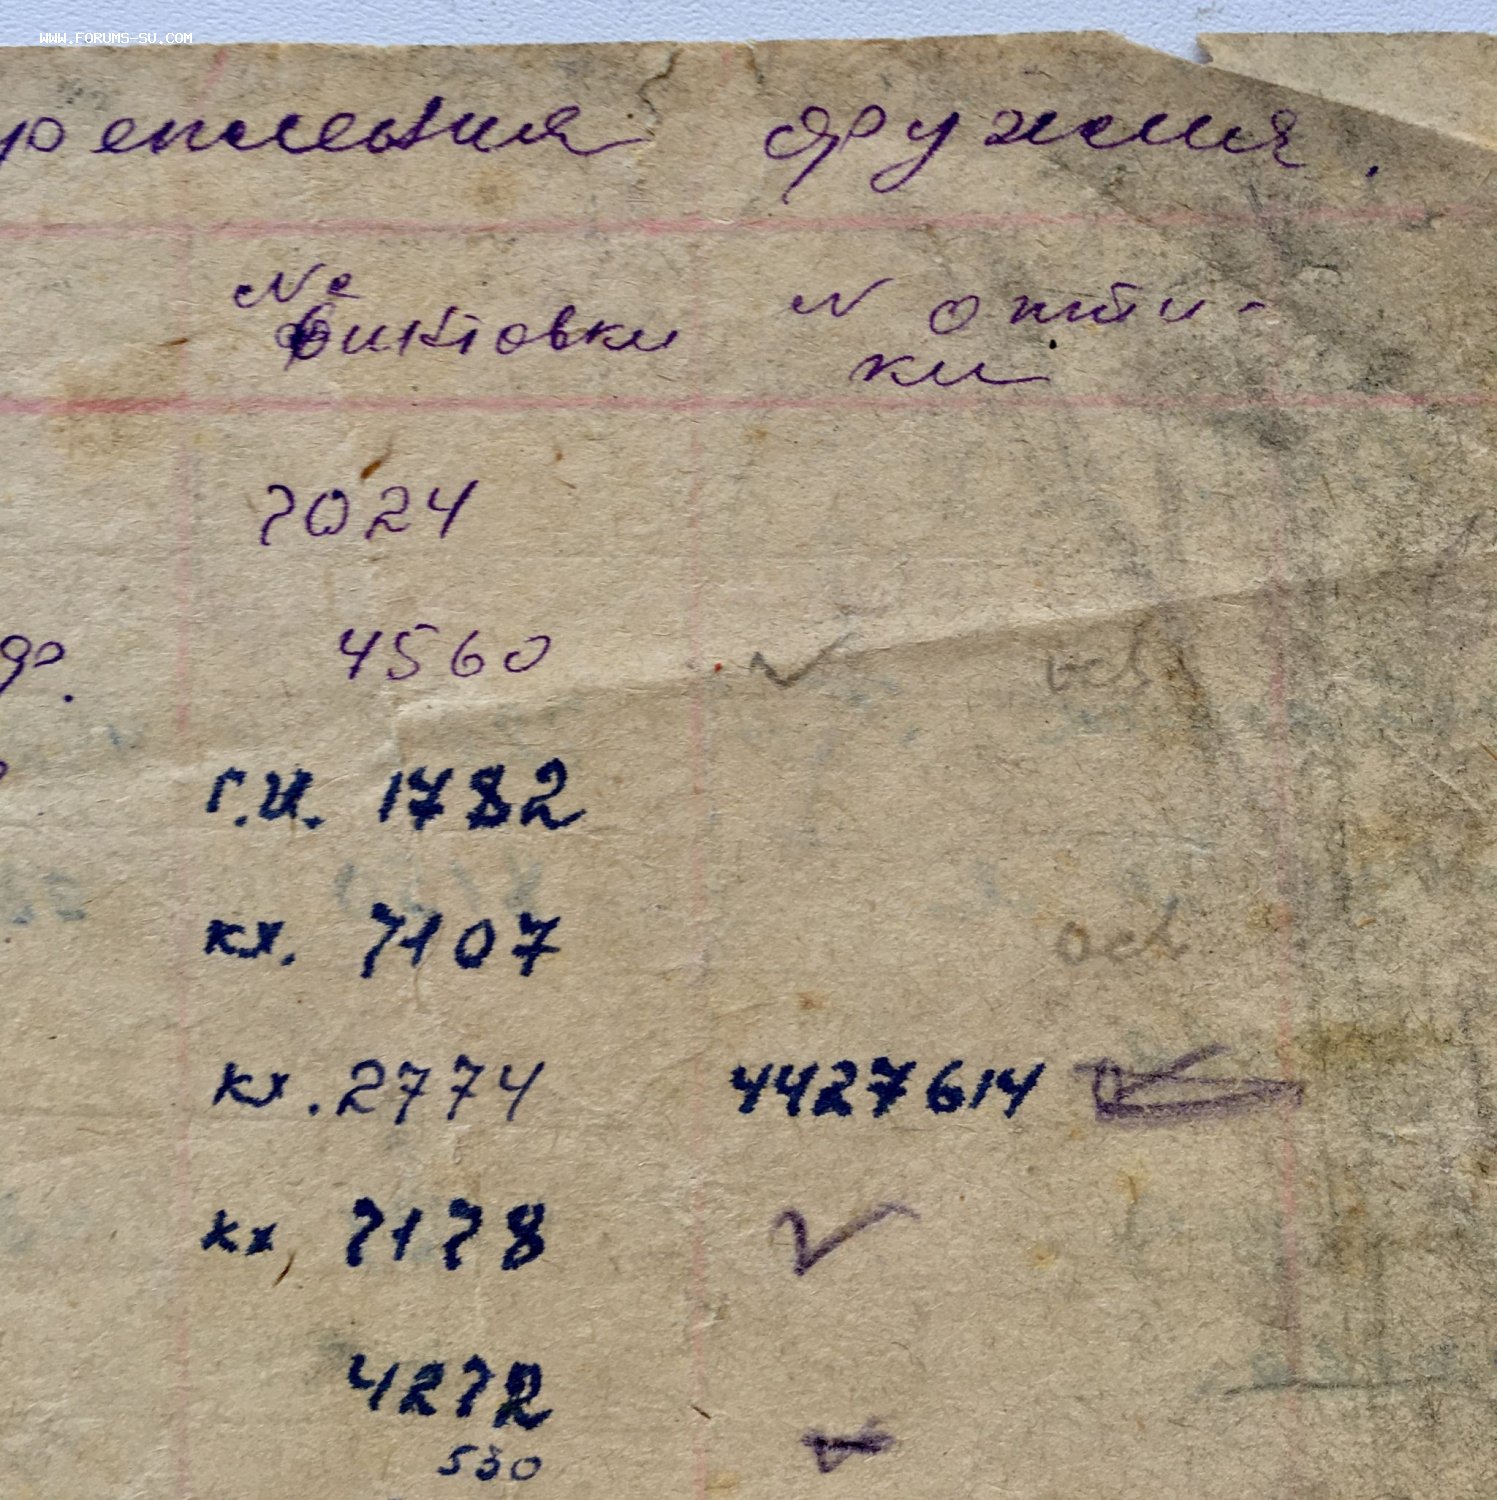 WWW.FORUMS-SU.COM
репления оружия.
№ винтовки
N опти-
ки
7024
др.
4560
г.и. 1782
кх. 7107
осв
кх. 2774
4427614
кх, 7178
4272
530